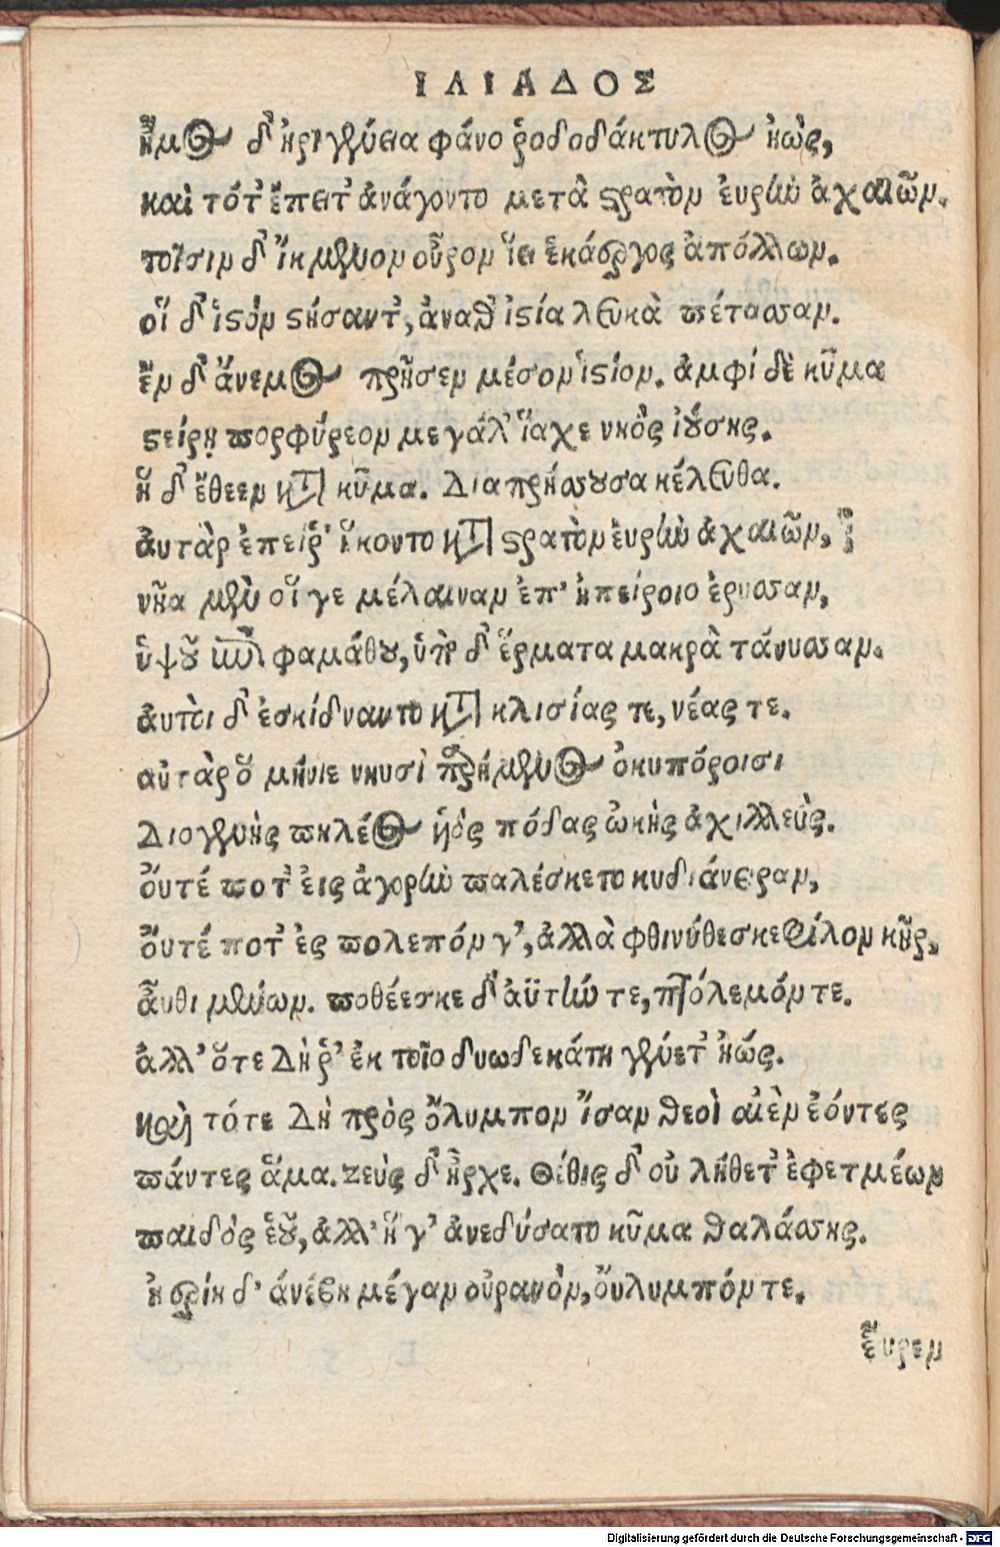 ΙΛΙΑΔΟΣ
ἦμος δ' ἠριγένεια φάνη ῥοδοδάκτυλος ἠὼς,
καὶ τότ' ἔπειτ' ἀνάγοντο μετὰ στρατὸν ἐυρὺν ἀχαιῶν.
τοῖσιν δ' ἴκμενον οὖρον ἵει ἑκάεργος ἀπόλλων.
οἵ δ' ἱστὸν στήσαντ', ἀνά θ' ἱστία λευκὰ πέτασσαν.
ἔν δ' ἄνεμος πρῆσεν μέσον ἱστίον. ἀμφί δὲ κῦμα
στείρῃ πορφύρεον μεγάλ' ἴαχε νηὸς ἰούσης.
ἥ δ' ἔθεεν κατὰ κῦμα. διαπρήσσουσα κέλευθα.
ἀυτὰρ ἐπεί ῥ' ἵκοντο κατὰ στρατὸν ἐυρὺν ἀχαιῶν,
νῆα μὲν οἵ γε μέλαιναν ἐπ' ἠπείροιο ἐρυσσαν,
ὑψοῦ ἐπὶ ψαμάθου, ὑπὸ δ' ἕρματα μακρὰ τάνυσσαν.
ἀυτοὶ δ' ἐσκίδναντο κατὰ κλισίας τε, νέας τε.
αὐτὰρ ὅ μήνιε νηυσὶ παρήμενος ὀκυπόροισι
Διογενὴς πηλέος ὑὸς πόδας ὠκὴς ἀχιλλεὺς.
ὄυτέ ποτ' ἐις ἀγορὴν παλέσκετο κυδιάνειραν,
ὄυτέ ποτ' ἐς πολεπόν γ', ἀλλὰ φθινύθεσκε φίλον κῆρ,
ἆυθι μένων. ποθέεσκε δ' ἀϋτήν τε, πτόλεμόν τε.
ἀλλ' ὅτε Δὴ ῥ' ἐκ τοῖο δυωδεκάτη γένετ' ἠώς.
καὶ τότε Δὴ πρὸς ὄλυμπον ἴσαν θεοὶ αἰὲν ἐόντες
πάντες ἅμα. ζεὺς δ' ἦρχε. Θέθις δ' οὐ λήθετ' ἐφετμέων
παιδὸς ἑοῦ, ἀλλ' ἥ γ' ἀνεδύσατο κῦμα θαλάσσης.
ἠερίη δ' ἀνέβη μέγαν οὐρανὸν, ὄυλυμπόν τε.
ἕυρεν
Digitalisierung gefördert durch die Deutsche Forschungsgemeinschaft - DFG